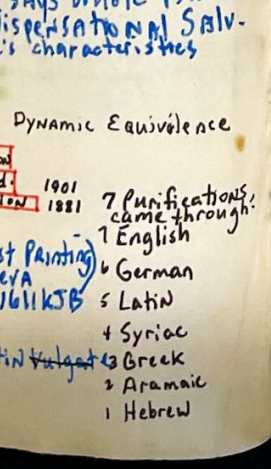 says whole
Dispensational Salv-
's characteristics
Dynamic Equivilence
1901
1881
7 Purifications,
came through:
7 English
6 German
5 Latin
4 Syriac
3 Greek
2 Aramaic
1 Hebrew
st Painting)
eva
1611 KJB
tin Vulgate